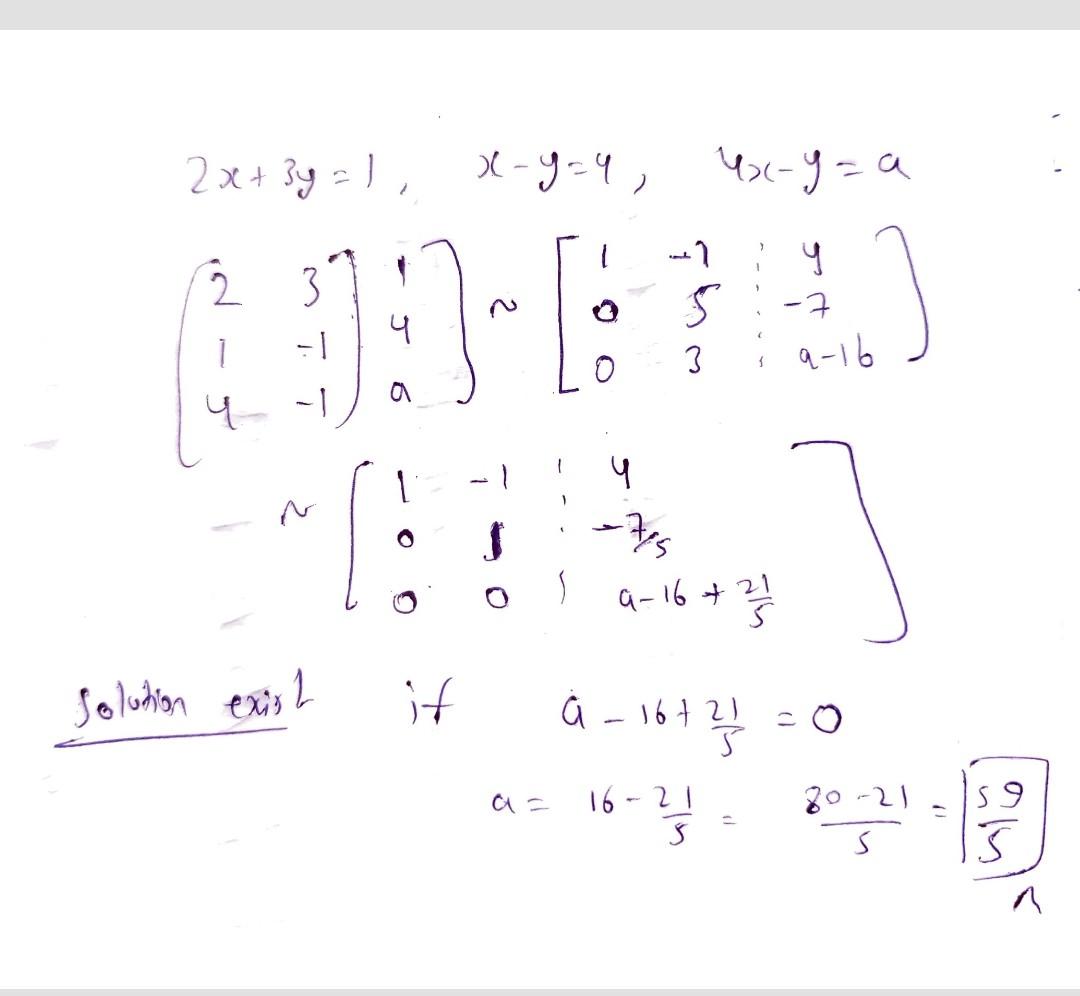 2x + 3y = 1, x - y = 4, 4x - y = a
[2 3 | 1
1 -1 | 4
4 -1 | a] ~ [1 -1 ⋮ 4
0 5 ⋮ -7
0 3 ⋮ a-16]
~ [1 -1 ⋮ 4
0 1 ⋮ -7/5
0 0 ⋮ a-16 + 21/5]
Solution exist if a - 16 + 21/5 = 0
a = 16 - 21/5 = (80-21)/5 = 59/5